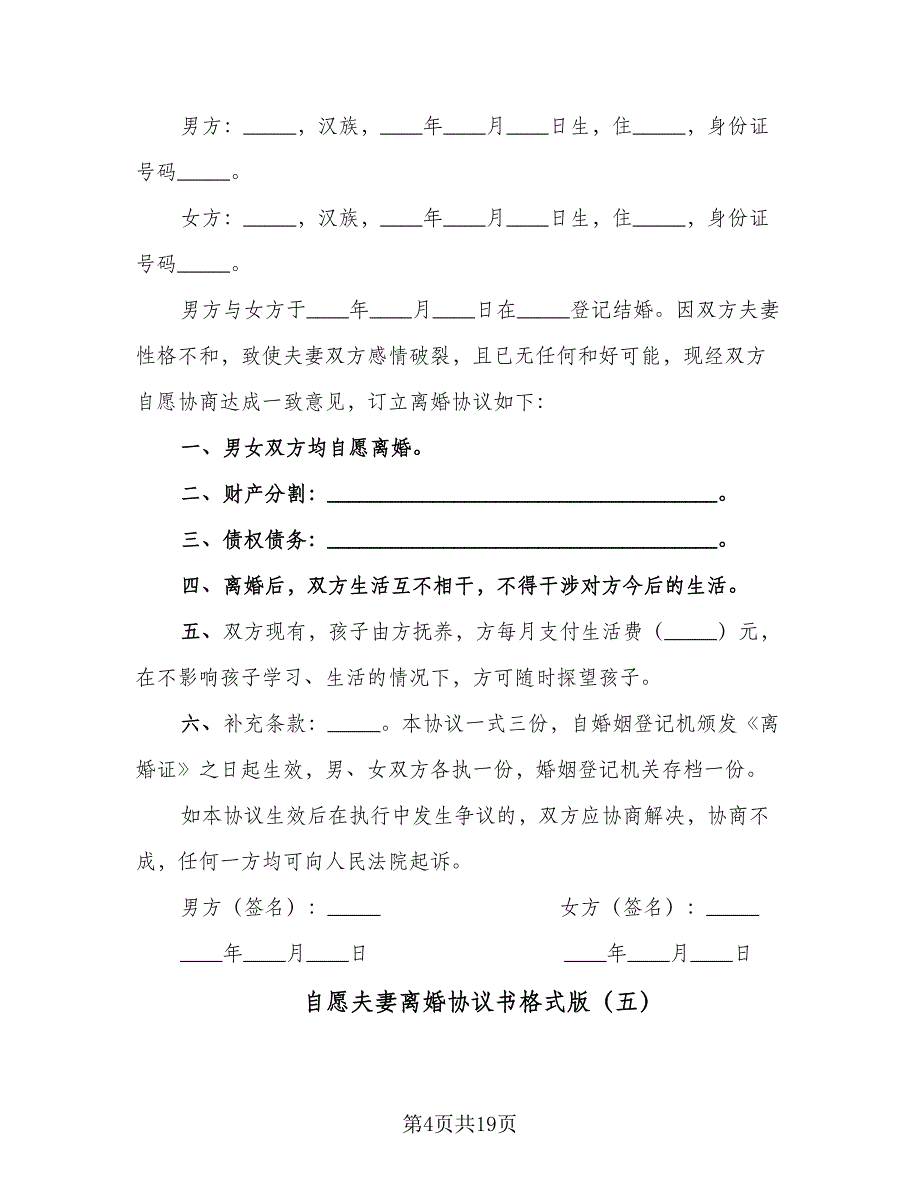 男方：_____，汉族，____年____月____日生，住_____，身份证
号码_____。
女方：_____，汉族，____年____月____日生，住_____，身份证
号码_____。
男方与女方于____年____月____日在_____登记结婚。因双方夫妻
性格不和，致使夫妻双方感情破裂，且已无任何和好可能，现经双方
自愿协商达成一致意见，订立离婚协议如下：
一、男女双方均自愿离婚。
二、财产分割：_____________________________________。
三、债权债务：_____________________________________。
四、离婚后，双方生活互不相干，不得干涉对方今后的生活。
五、双方现有，孩子由方抚养，方每月支付生活费（_____）元，
在不影响孩子学习、生活的情况下，方可随时探望孩子。
六、补充条款：_____。本协议一式三份，自婚姻登记机颁发《离
婚证》之日起生效，男、女双方各执一份，婚姻登记机关存档一份。
如本协议生效后在执行中发生争议的，双方应协商解决，协商不
成，任何一方均可向人民法院起诉。
男方（签名）：_____ 女方（签名）：_____
____年____月____日 ____年____月____日
自愿夫妻离婚协议书格式版（五）
第4页共19页